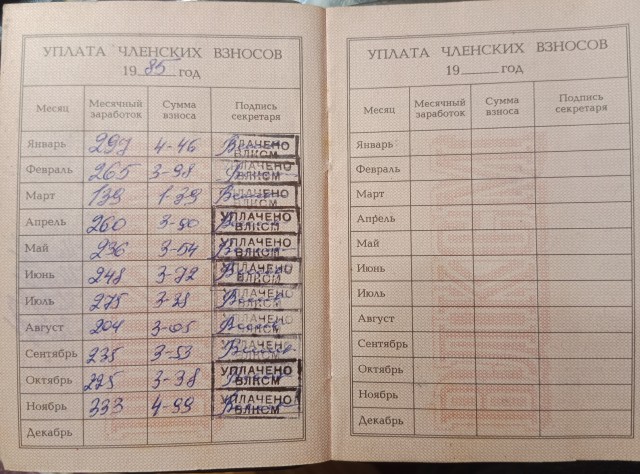 УПЛАТА ЧЛЕНСКИХ ВЗНОСОВ
1985 год
Месяц Месячный заработок Сумма взноса Подпись секретаря
Январь 297 4-46 УПЛАЧЕНО ВЛКСМ
Февраль 265 3-98 УПЛАЧЕНО ВЛКСМ
Март 139 1-39 УПЛАЧЕНО ВЛКСМ
Апрель 260 3-90 УПЛАЧЕНО ВЛКСМ
Май 236 3-54 УПЛАЧЕНО ВЛКСМ
Июнь 248 3-72 УПЛАЧЕНО ВЛКСМ
Июль 275 УПЛАЧЕНО ВЛКСМ
Август 204 3-05 УПЛАЧЕНО ВЛКСМ
Сентябрь 235 3-53 УПЛАЧЕНО ВЛКСМ
Октябрь 225 3-38 УПЛАЧЕНО ВЛКСМ
Ноябрь 333 4-99 УПЛАЧЕНО ВЛКСМ
Декабрь
УПЛАТА ЧЛЕНСКИХ ВЗНОСОВ
19 год
Месяц Месячный заработок Сумма взноса Подпись секретаря
Январь
Февраль
Март
Апрель
Май
Июнь
Июль
Август
Сентябрь
Октябрь
Ноябрь
Декабрь